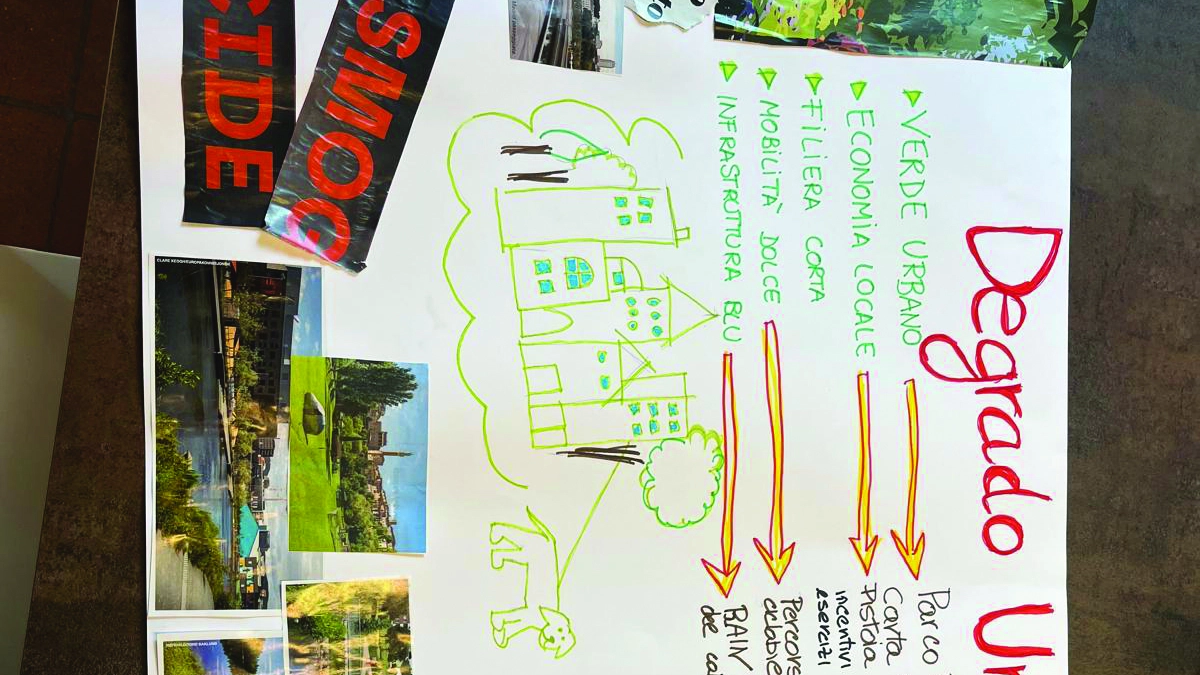 Degrado Ur
VERDE URBANO
Parco
ECONOMIA LOCALE
Carta
Pistoia
incentivi
esercizi
FILIERA CORTA
MOBILITÀ DOLCE
Percors
INFRASTRUTTURA BLU
RAIN
SMOG
CIDE
CLARE KEOGH/EUROPAKOMMISJONEN